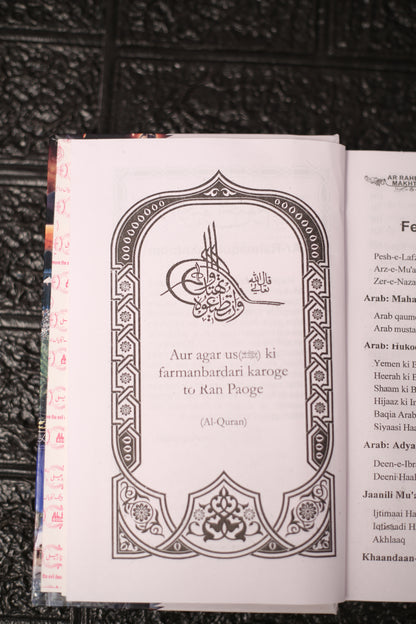 قال الله تعالى
وإن تطيعوه تهتدوا
Aur agar us(ﷺ) ki
farmanbardari karoge
to Ran Paoge
(Al-Quran)
AR RAHE
MAKHT
Fe
Pesh-e-Lafz
Arz-e-Mu'
Zer-e-Naza
Arab: Maha
Arab qaume
Arab musta
Arab: Hukoo
Yemen ki B
Heerah ki B
Shaam ki B
Hijaaz ki In
Baqia Arab
Siyaasi Haa
Arab: Adya
Deen-e-Ibra
Deeni-Haal
Jaanili Mu'
Ijtimaai Ha
Iqtisaadi H
Akhlaaq
Khaandaan-